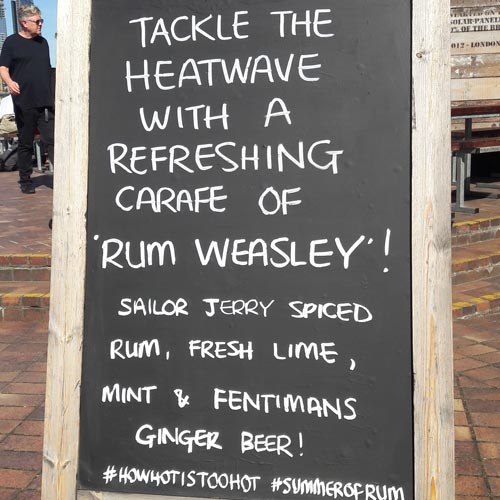 TACKLE THE
HEATWAVE
WITH A
REFRESHING
CARAFE OF
'RUM WEASLEY'!
SAILOR JERRY SPICED
RUM, FRESH LIME,
MINT & FENTIMANS
GINGER BEER!
#HOWHOTISTOOHOT #SUMMEROFRUM
SOLAR-PANELE
% OF THE BR
2012 - LONDON